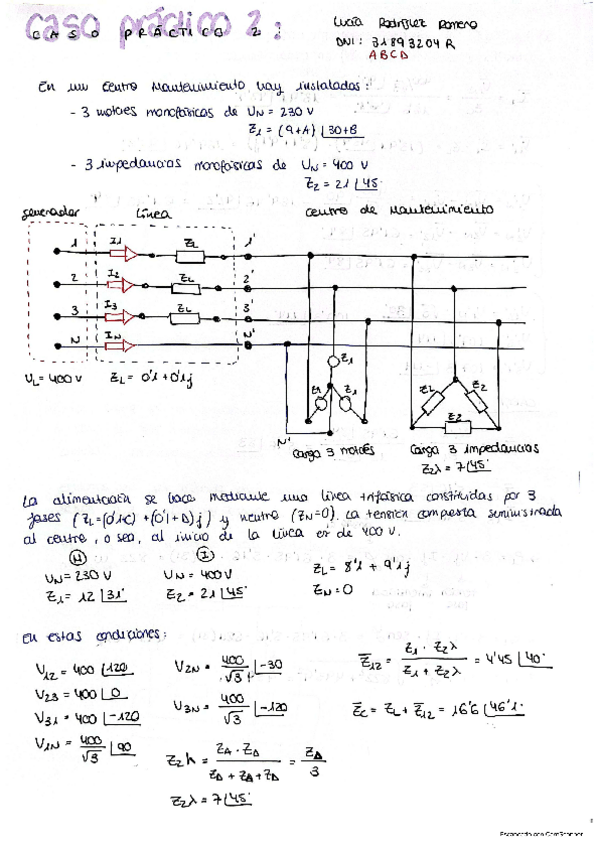 caso práctico 2:
CASO PRÁCTICO 2:
Lucía Rodríguez Romero
DNI: 31893204R
ABCD
En un centro Mantenimiento hay instalados:
- 3 motores monofásicos de UN = 230 V
Z1 = (9+A) |30+B
- 3 impedancias monofásicas de UN = 400 V
Z2 = 21 |45
Generador Línea centro de Mantenimiento
1 I1 ZL 1'
2 I2 ZL 2'
3 I3 ZL 3'
N IN N'
Z1
Z1 Z1
Z2 Z2
Z2
UL = 400 V ZL = 0'1 + 0'1j
N' Carga 3 motores
Carga 3 impedancias
Z2λ = 7|45
La alimentación se hace mediante una línea trifásica constituidas por 3
fases (ZL = (0'1+C) + (0'1+D)j) y neutro (ZN=0). La tensión compuesta suministrada
al centro, o sea, al inicio de la línea es de 400 V.
UN = 230 V UN = 400 V ZL = 8'1 + 9'1j
Z1 = 12 |31 Z2 = 21 |45 ZN = 0
En estas condiciones:
V12 = 400 |120 V2N = 400/√3 |-30 Z12 = Z1 · Z2λ / Z1 + Z2λ = 4'45 |40
V23 = 400 |0
V31 = 400 |-120 V3N = 400/√3 |-120 ZC = ZL + Z12 = 16'6 |46'1
V1N = 400/√3 |90
ZΔ · ZΔ / ZΔ + ZΔ + ZΔ = ZΔ/3
Z2λ = 7|45
Escaneado con CamScanner